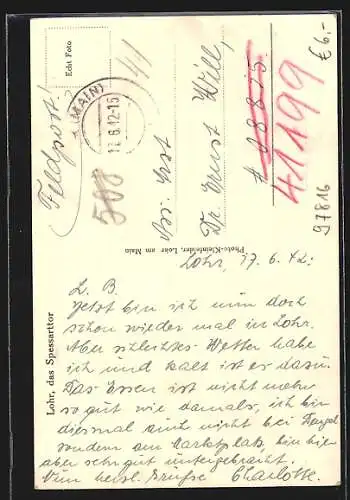 Feldpost!
Echt Foto
(MAIN)
18.6.42-16
Ass. Arzt
Dr. Ernst Will,
# 08875
41199
€6,-
97816
Photo-Kleinfelder, Lohr am Main
Lohr, das Spessarttor
Lohr, 17.6.42.
L. B.
Jetzt bin ich nun doch
schon wieder mal in Lohr.
Aber schlechtes Wetter habe
ich und kalt ist es dazu.
Das Essen ist nicht mehr
so gut wie damals, ich bin
diesmal auch nicht bei
sondern am Marktplatz, bin hier
aber sehr gut untergebracht.
Nun herzl. Grüße Charlotte.